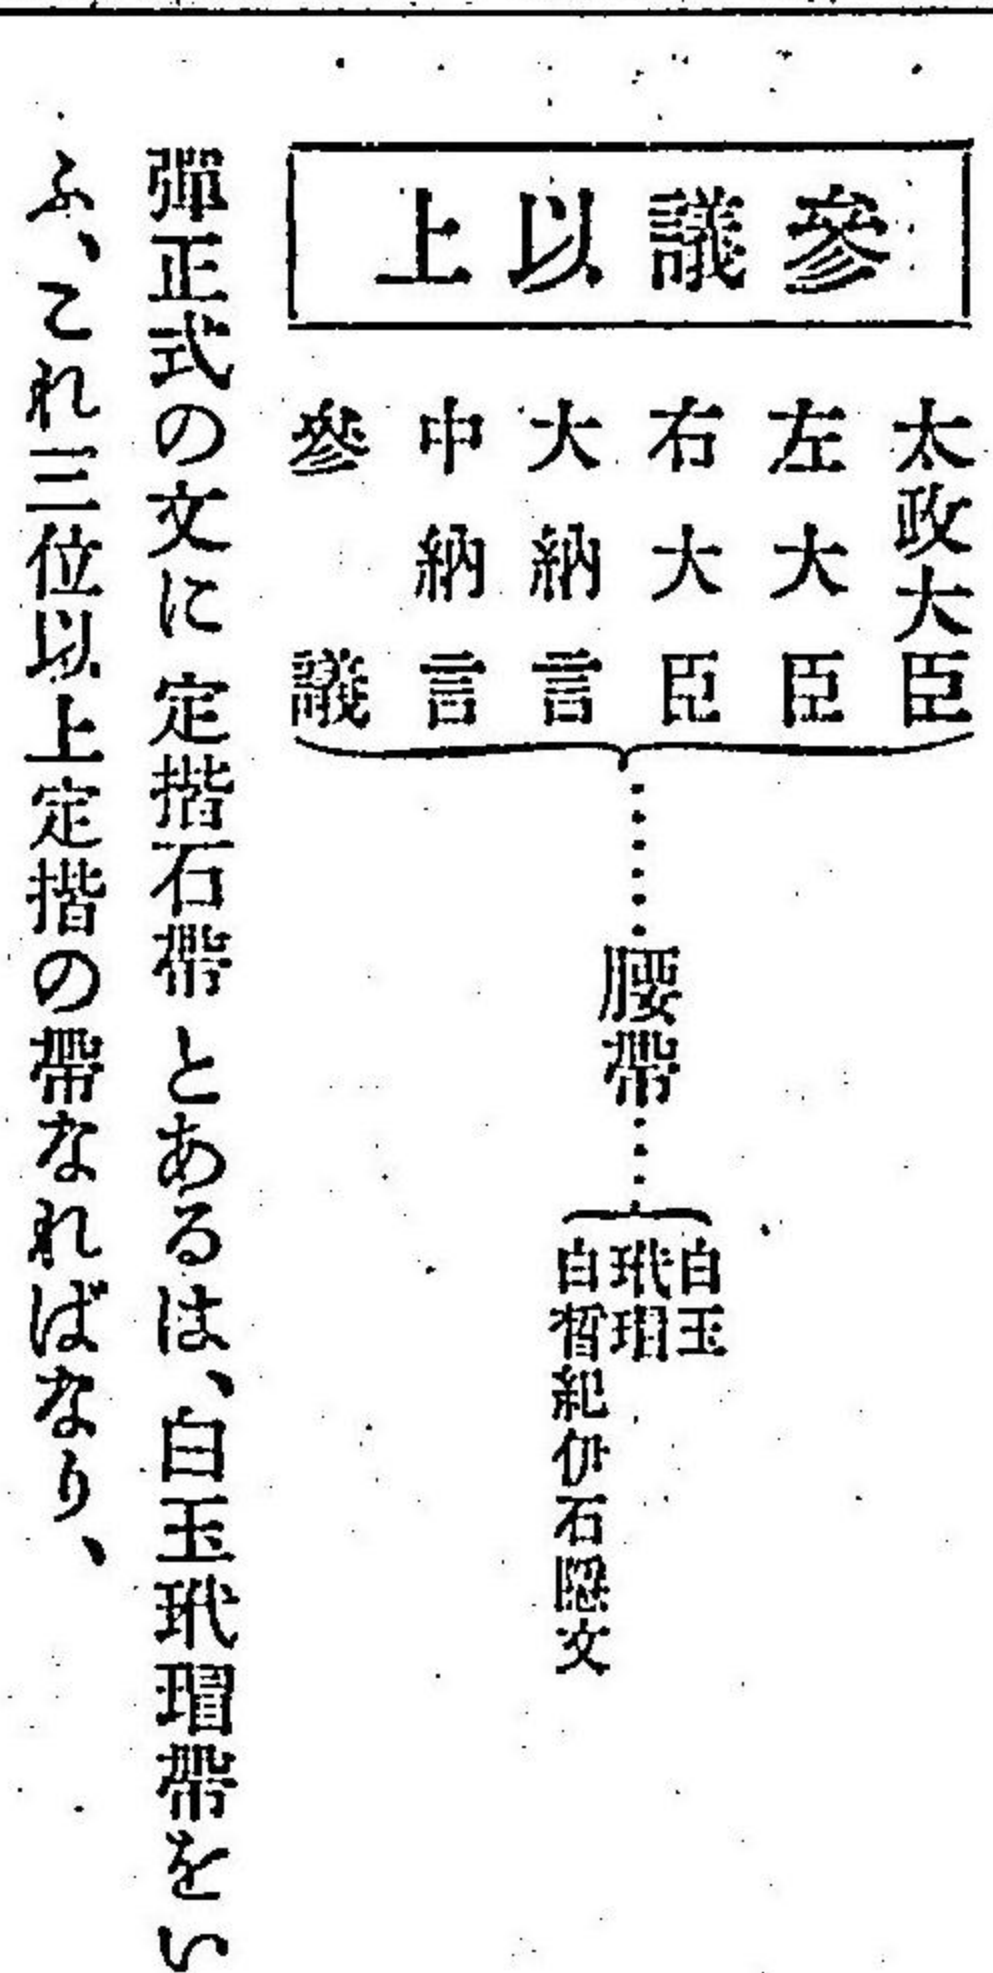 參議以上
太政大臣
左大臣
右大臣
大納言
中納言
參議
腰帶
白玉
玳瑁
白皙紀伊石隱文
彈正式の文に定揩石帶とあるは、白玉玳瑁帶をい
ふ、これ三位以上定揩の帶なればなり、